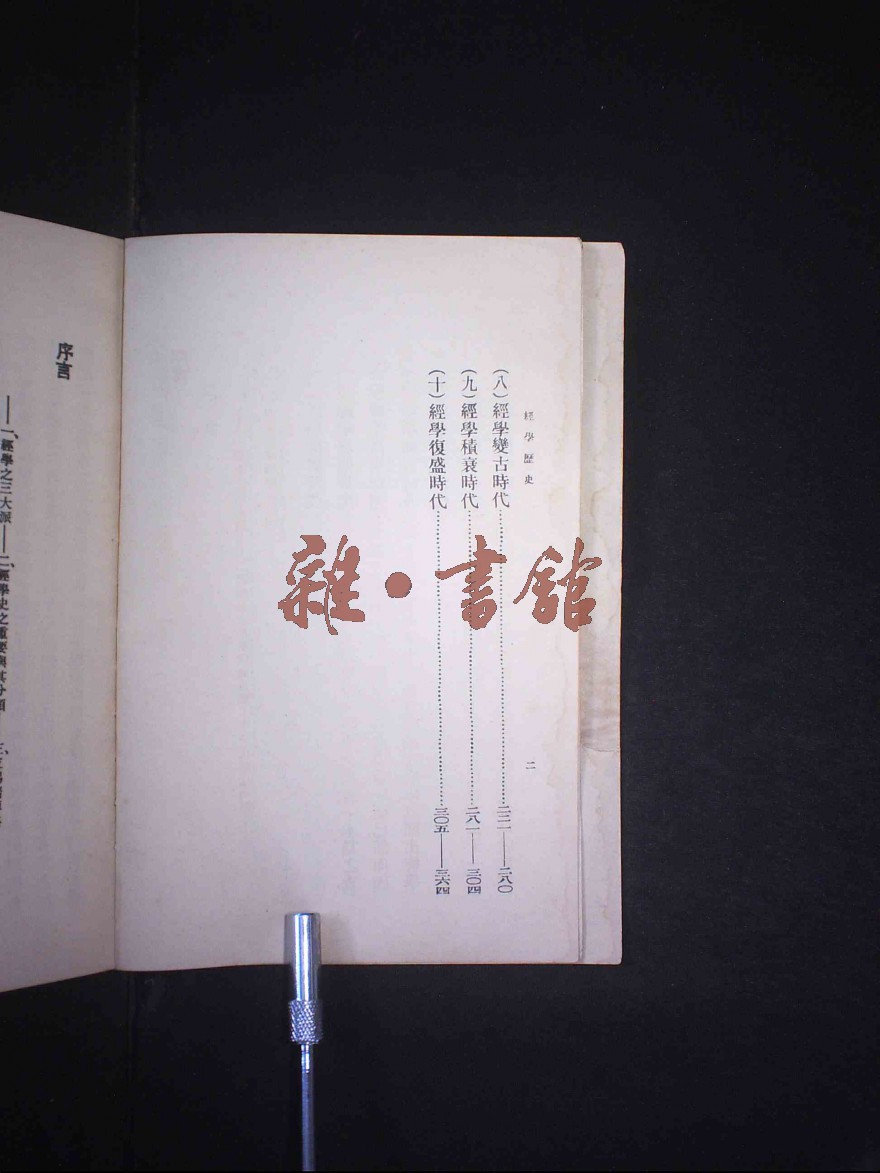 經學歷史
二
(八)經學變古時代……二二一——二八〇
(九)經學積衰時代……二八一——三〇四
(十)經學復盛時代……三〇五——三六四
雜·書館
序言
——一、經學之三大派——二、經學史之重要與其分類——三、